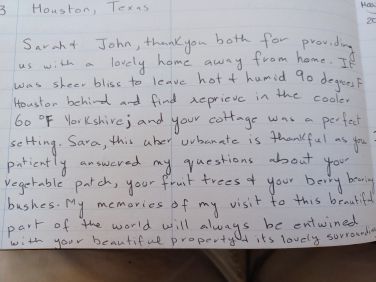 3 Houston, Texas
Sarah & John, thank you both for providing
us with a lovely home away from home. It
was sheer bliss to leave hot & humid 90 degrees F
Houston behind and find reprieve in the cooler
60 °F Yorkshire; and your cottage was a perfect
setting. Sara, this uber urbanate is thankful as you
patiently answered my questions about your
vegetable patch, your fruit trees & your berry bearing
bushes. My memories of my visit to this beautiful
part of the world will always be entwined
with your beautiful property & its lovely surroundin